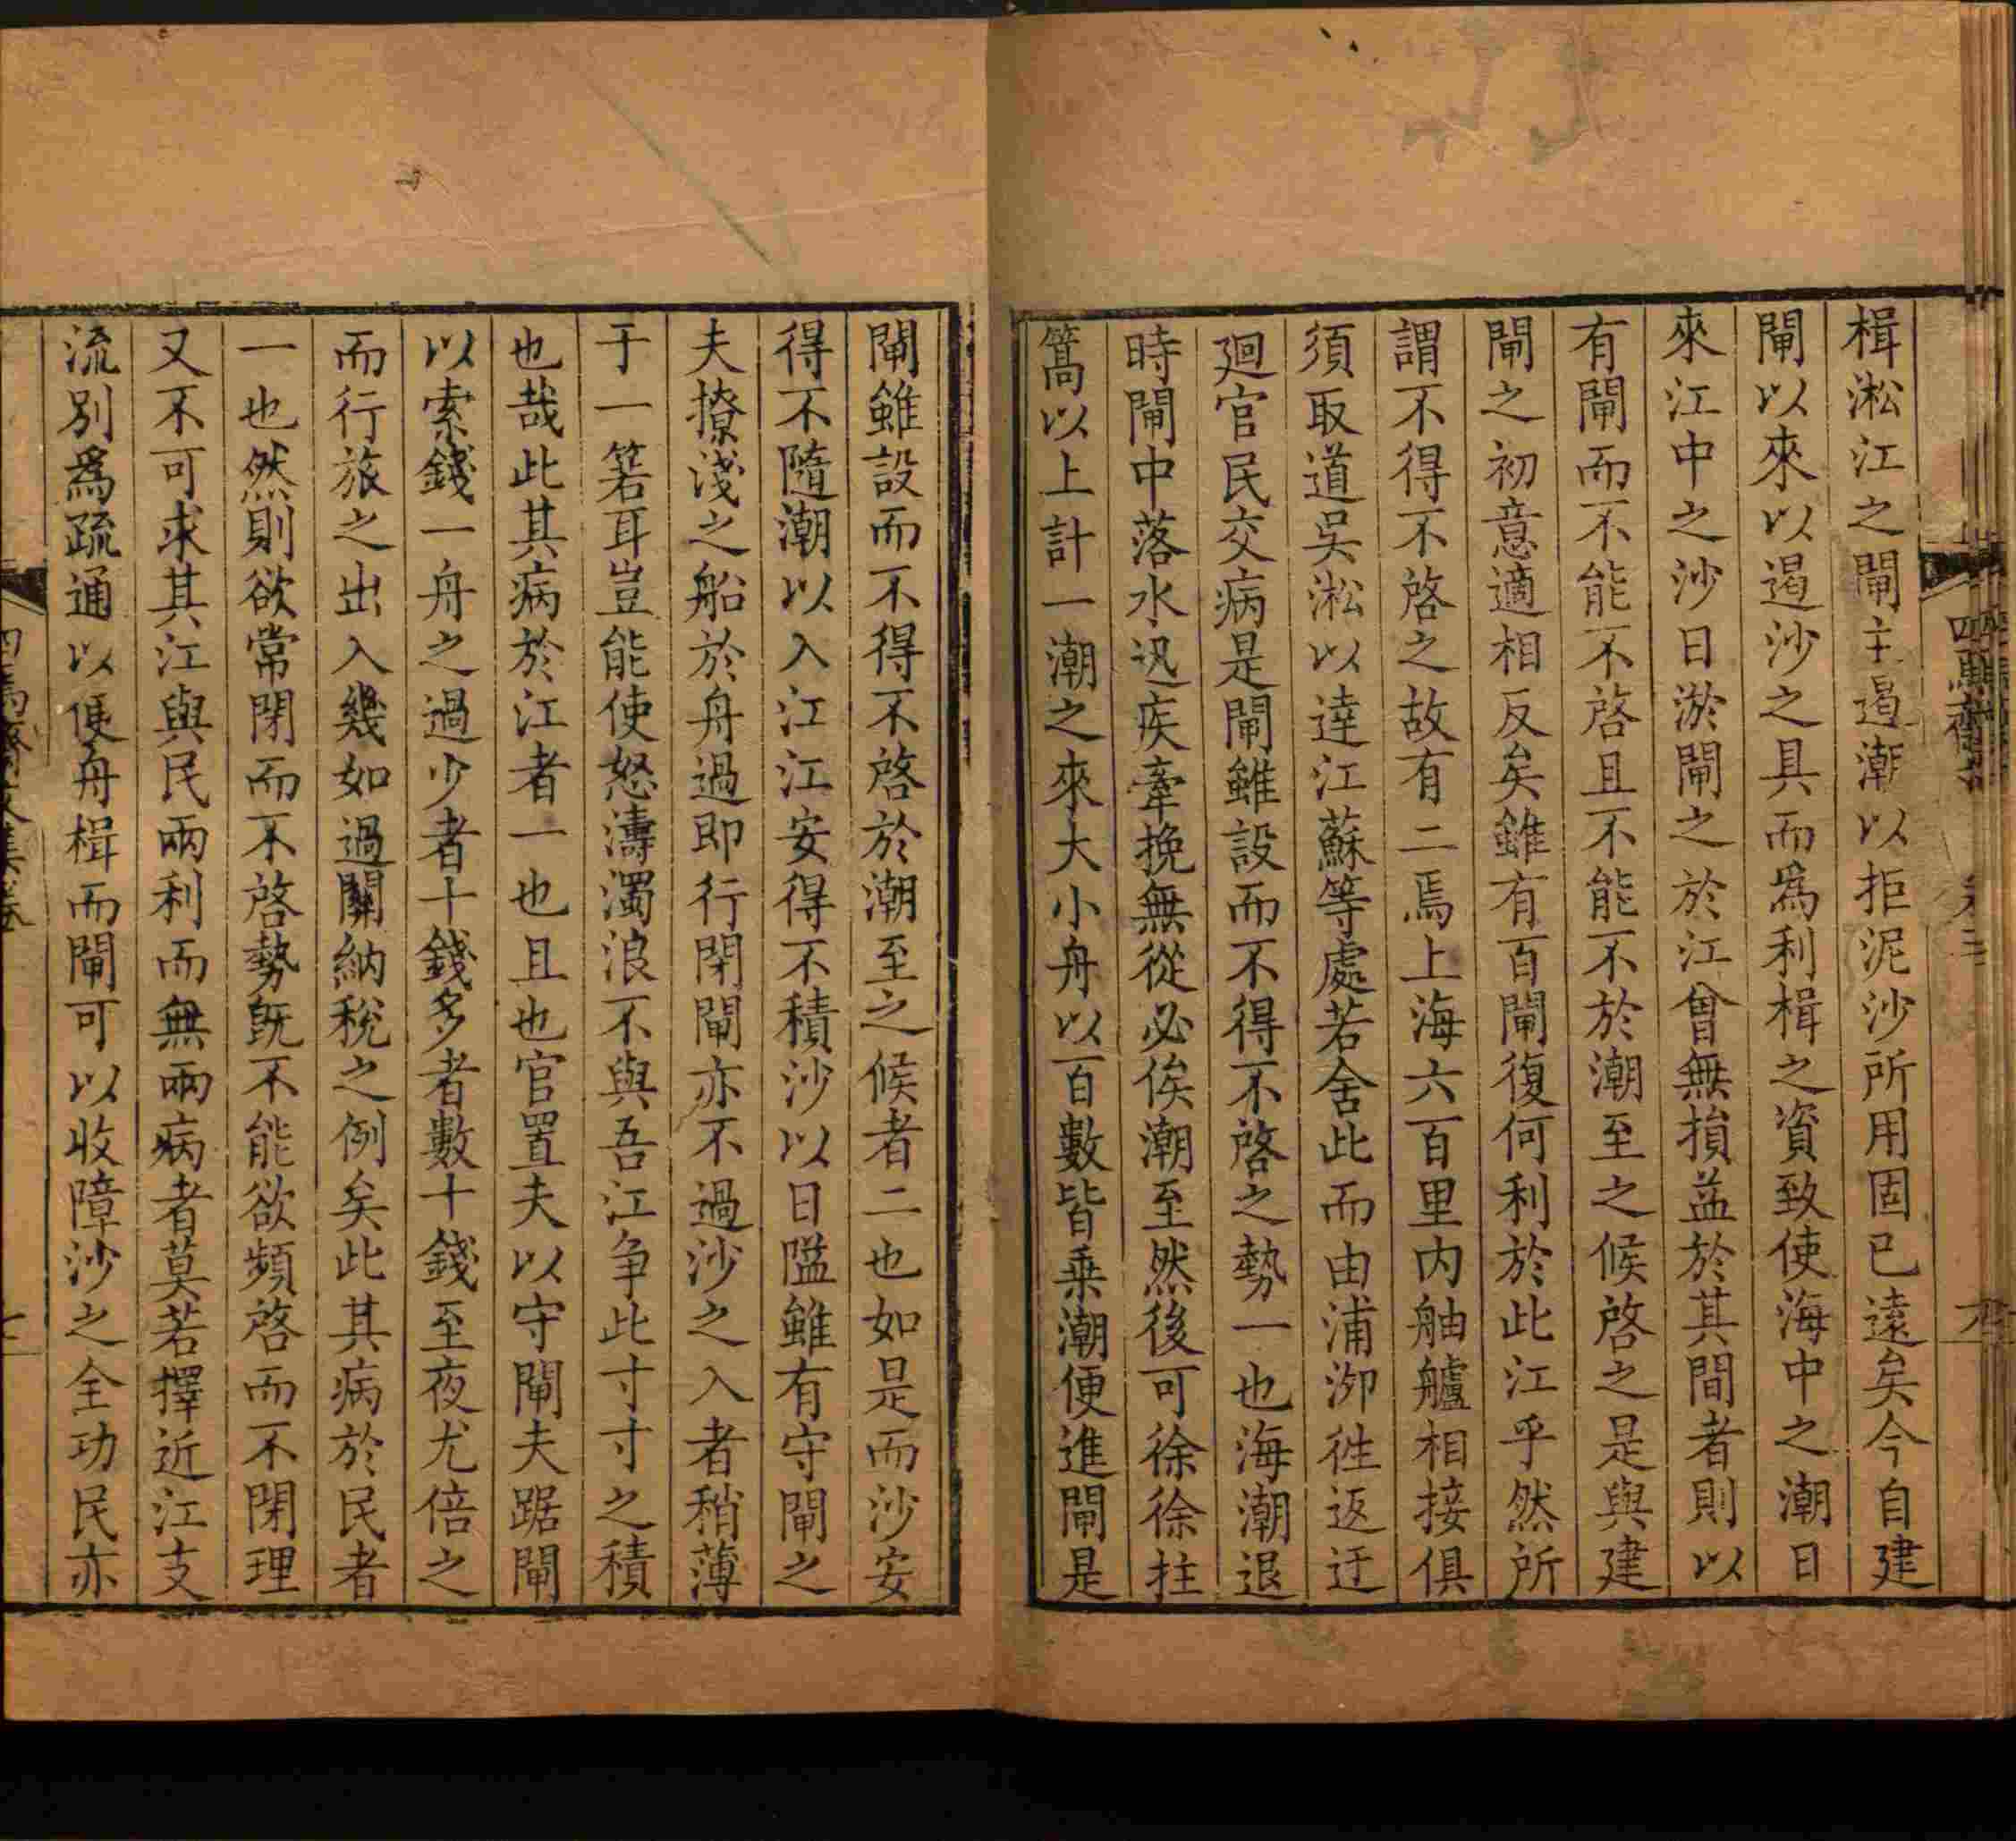 楫淞江之閘主遏潮以拒泥沙所用固已遠矣今自建
閘以來以遏沙之具而爲利楫之資致使海中之潮日
來江中之沙日淤閘之於江曾無損益於其間者則以
有閘而不能不啓且不能不於潮至之候啓之是與建
閘之初意適相反矣雖有百閘復何利於此江乎然所
謂不得不啓之故有二焉上海六百里内舳艫相接俱
須取道吳淞以達江蘇等處若舍此而由浦泖徃返迂
廻官民交病是閘雖設而不得不啓之勢一也海潮退
時閘中落水迅疾牽挽無從必俟潮至然後可徐徐拄
篙以上計一潮之來大小舟以百數皆乗潮便進閘是
閘雖設而不得不啓於潮至之候者二也如是而沙安
得不隨潮以入江江安得不積沙以日隘雖有守閘之
夫撩淺之船於舟過即行閉閘亦不過沙之入者稍薄
于一箬耳豈能使怒濤濁浪不與吾江争此寸寸之積
也哉此其病於江者一也且也官置夫以守閘夫踞閘
以索錢一舟之過少者十錢多者數十錢至夜尤倍之
而行旅之出入幾如過關納稅之例矣此其病於民者
一也然則欲常閉而不啓勢旣不能欲頻啓而不閉理
又不可求其江與民兩利而無兩病者莫若擇近江支
流別爲疏通以便舟楫而閘可以收障沙之全功民亦